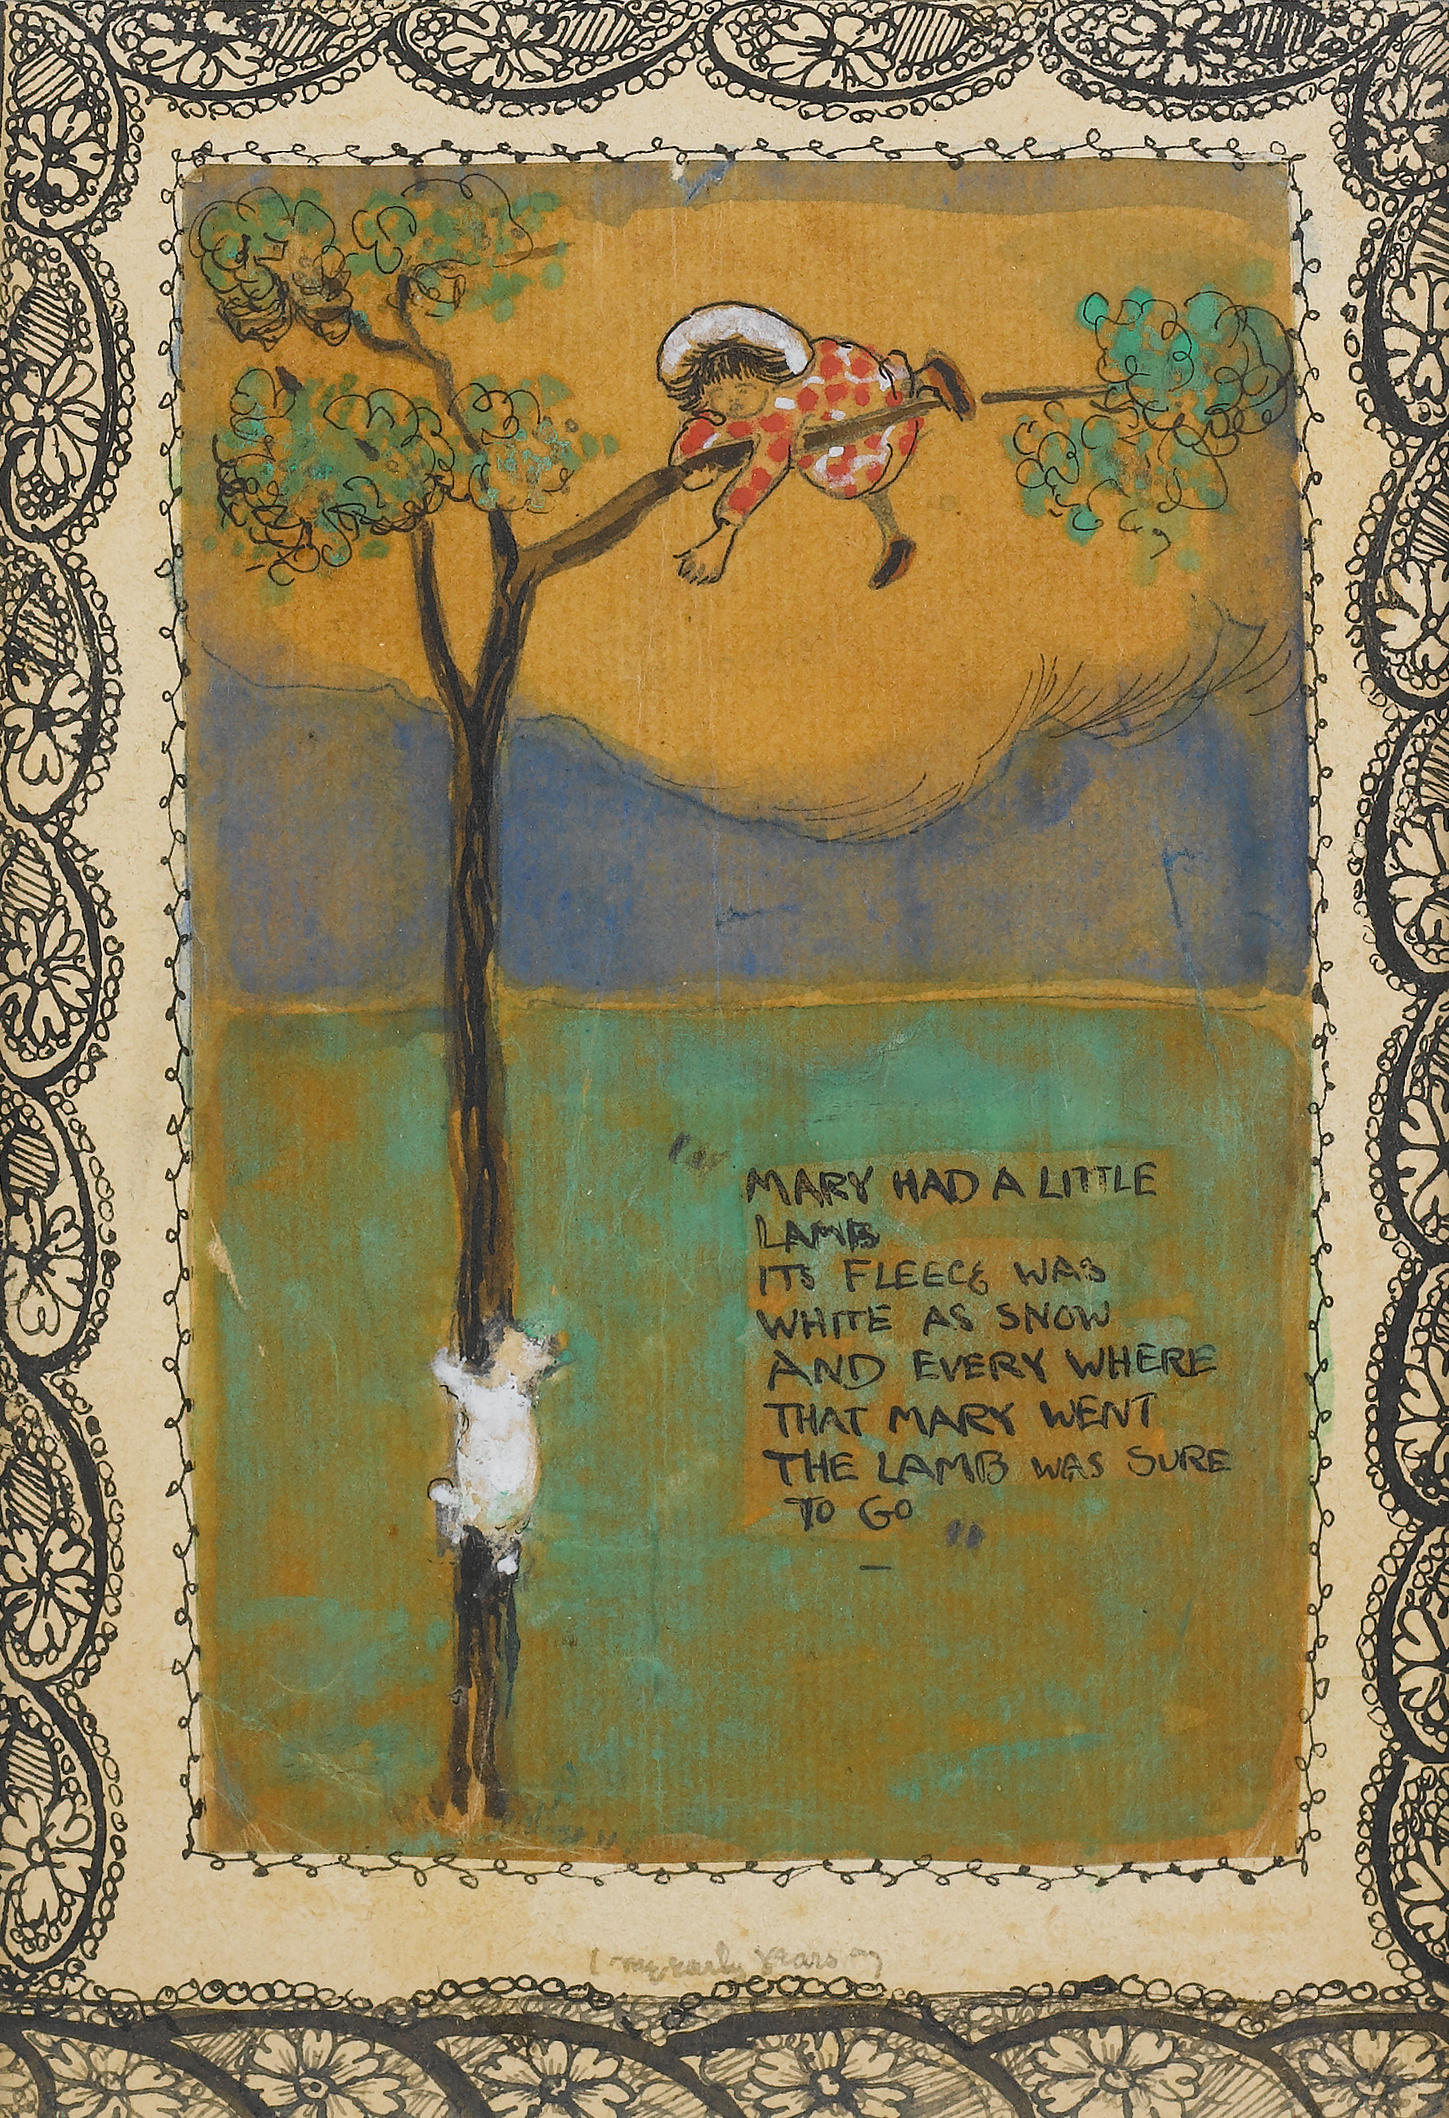 "MARY HAD A LITTLE
LAMB
ITS FLEECE WAS
WHITE AS SNOW
AND EVERY WHERE
THAT MARY WENT
THE LAMB WAS SURE
TO GO "
—
early years